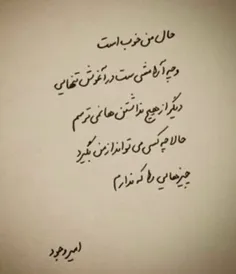 حال من خوب است
و چه آرامشی ست در آغوش تنهایی
دیگر از هیچ نداشتن ها نمی ترسم
حالا چه کسی می تواند از من بگیرد
چیزهایی را که ندارم
امیر وجود